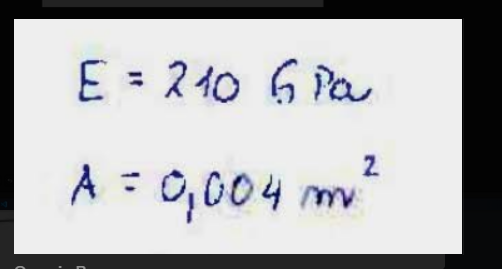 E = 210 GPa
A = 0,004 m²